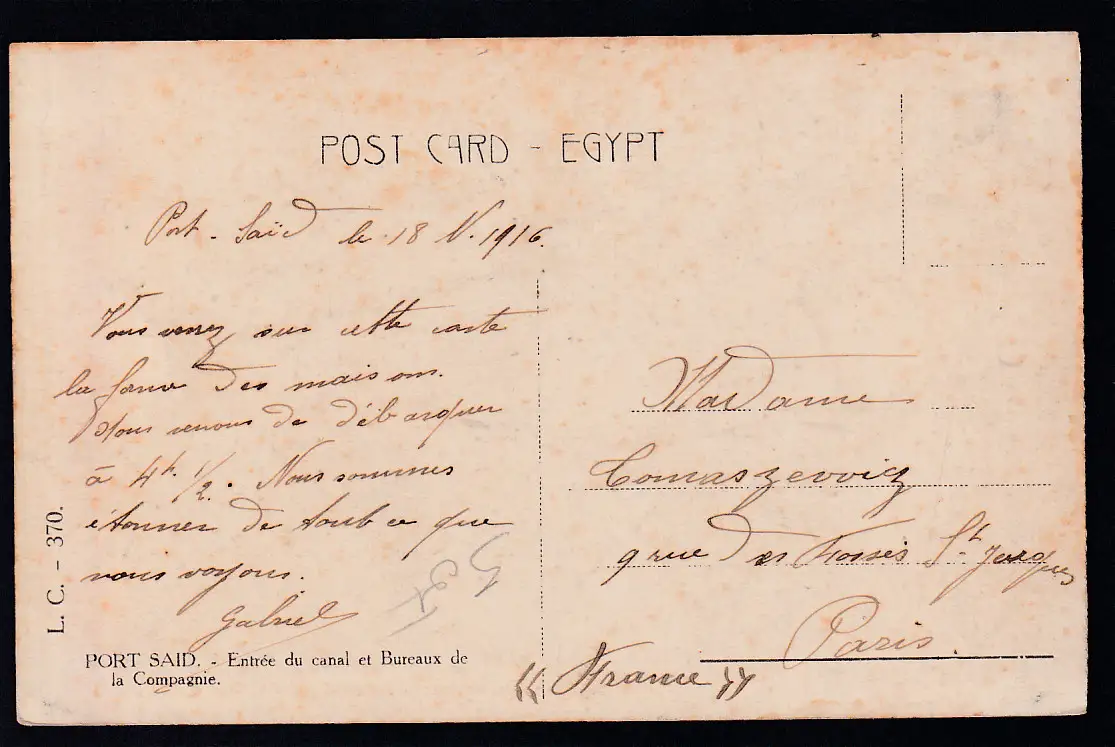 POST CARD - EGYPT
Port-Saïd le 18 N. 1916.
Vous verrez sur cette carte
la forme des maisons.
Nous venons de débarquer
à 4h. 1/2. Nous sommes
étonner de tout ce que
nous voyons.
Gabriel
PORT SAID. - Entrée du canal et Bureaux de
la Compagnie.
L. C. - 370.
Madame
Tomaszewicz
9 rue des Fossés St Jacques
Paris.
"France"